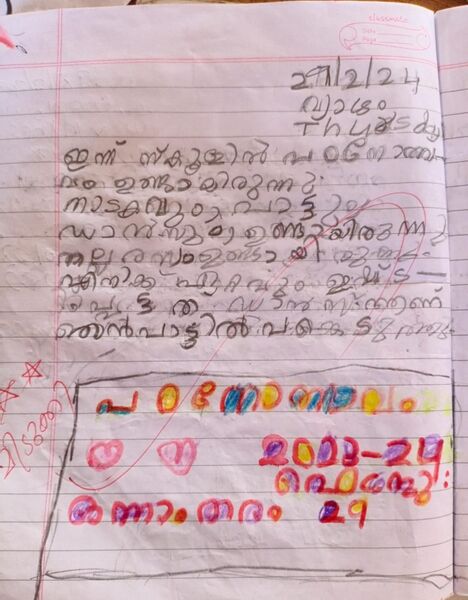 classmate
Date
Page
29/2/24
വ്യാഴം
Thursday
ഇന്ന് സ്കൂളിൽ പഠനോത്സ-
വം ഉണ്ടായിരുന്നു.
നാടകവും, പാട്ടും,
ഡാൻസും, ഉണ്ടായിരുന്നു
നല്ല രസം ഉണ്ടായിരുന്നു.
എനിക്ക് ഏറ്റവും ഇഷ്ട-
പ്പെട്ടത് ഡാൻസ് ആണ്
ഞാൻ പാട്ടിൽ പങ്കെടുത്തു.
പഠനോത്സവം
2023-24
ഫെബ്രു:
ഒന്നാംതരം 29